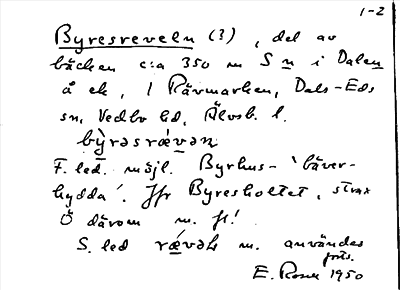 1-2
Byresreveln (?), del av
bäcken c:a 350 m S n i Dalen
å ek, i Rävmarken, Dals-Eds
sn, Vedbo hd, Älvsb. l.
bỳrəsrǽvən
F. led. möjl. Byrhus- 'bäver-
hydda'. Jfr Byresholtet, strax
Ö därom m. fl!
S. led rǽvəl m. användes
forts.
E. Rosell 1950